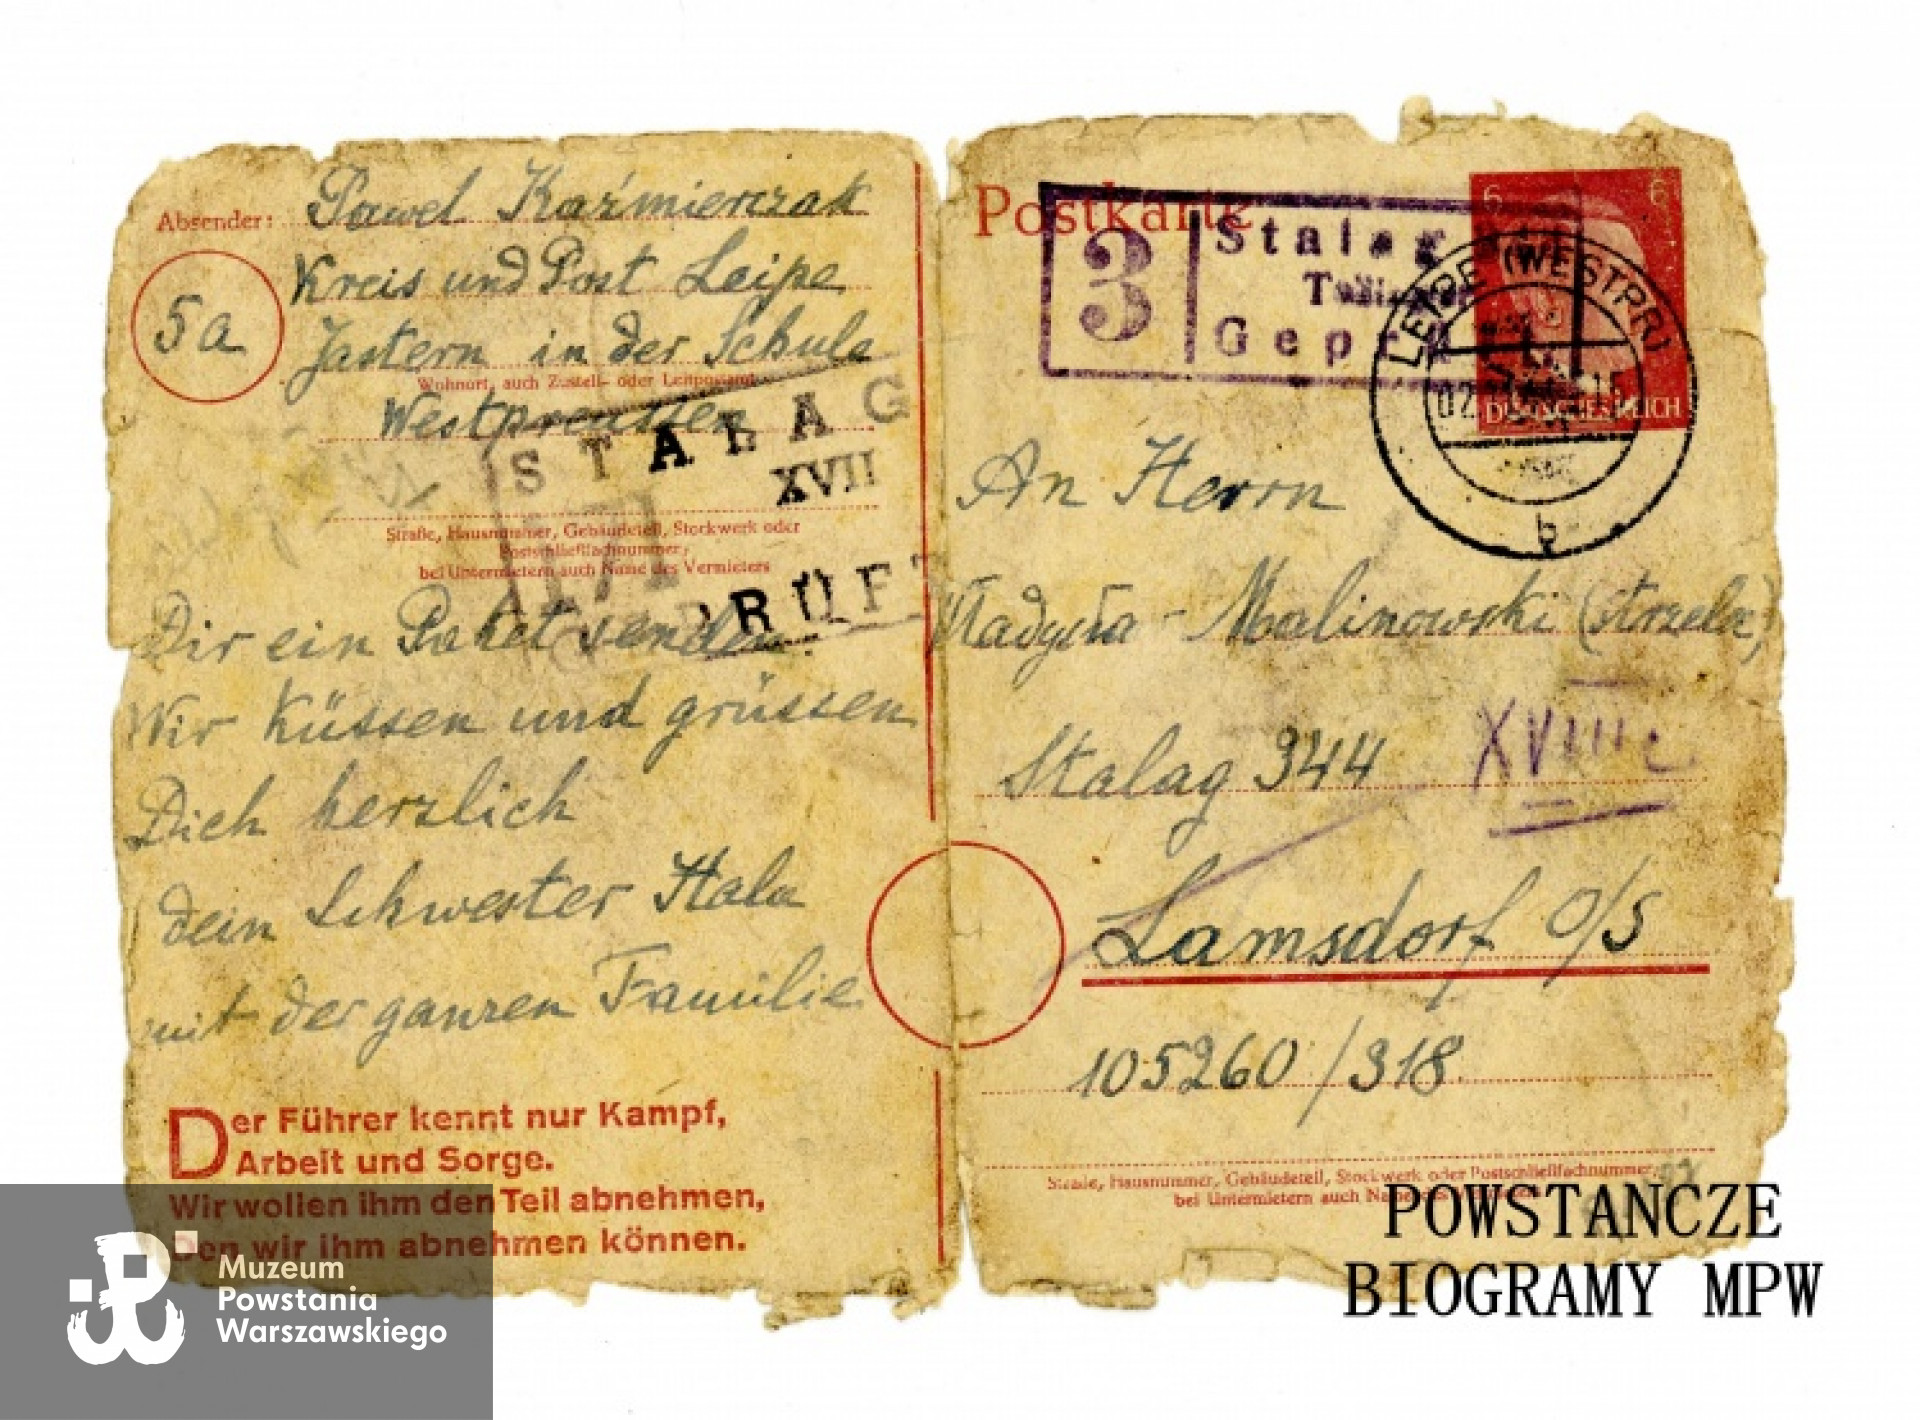 Absender: Paweł Kaźmierczak
5a
Kreis und Post Leipe
Jastern in der Schule
Wohnort, auch Zustell- oder Leitpostamt
Westpreussen
STALAG
XVII
Straße, Hausnummer, Gebäudeteil, Stockwerk oder
Postschließfachnummer,
bei Untermietern auch Name des Vermieters
PRÜFT
Dir ein Paket senden.
Wir küssen und grüssen
Dich herzlich
dein Schwester Hala
mit der ganzen Familie
Der Führer kennt nur Kampf,
Arbeit und Sorge.
Wir wollen ihm den Teil abnehmen,
Den wir ihm abnehmen können.
Postkarte
3
Stalag
Gep
6 6
DEUTSCHES REICH
LEIPE (WESTPR)
b
An Herrn
Władysła - Malinowski (strzelc)
Stalag 344
XVIII c
Lamsdorf O/S
105260/318
Straße, Hausnummer, Gebäudeteil, Stockwerk oder Postschließfachnummer,
bei Untermietern auch Name des Vermieters
Muzeum
Powstania
Warszawskiego
POWSTANCZE
BIOGRAMY MPW